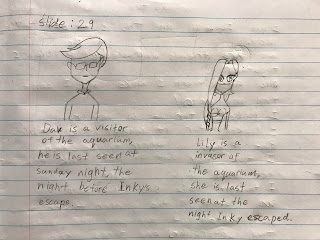 Slide: 29
Dak is a visitor
of the aquarium,
he is last seen at
sunday night, the
night before Inky's
escape.
Lily is a
invasor of
the aquarium,
she is last
seen at the
night Inky escaped.